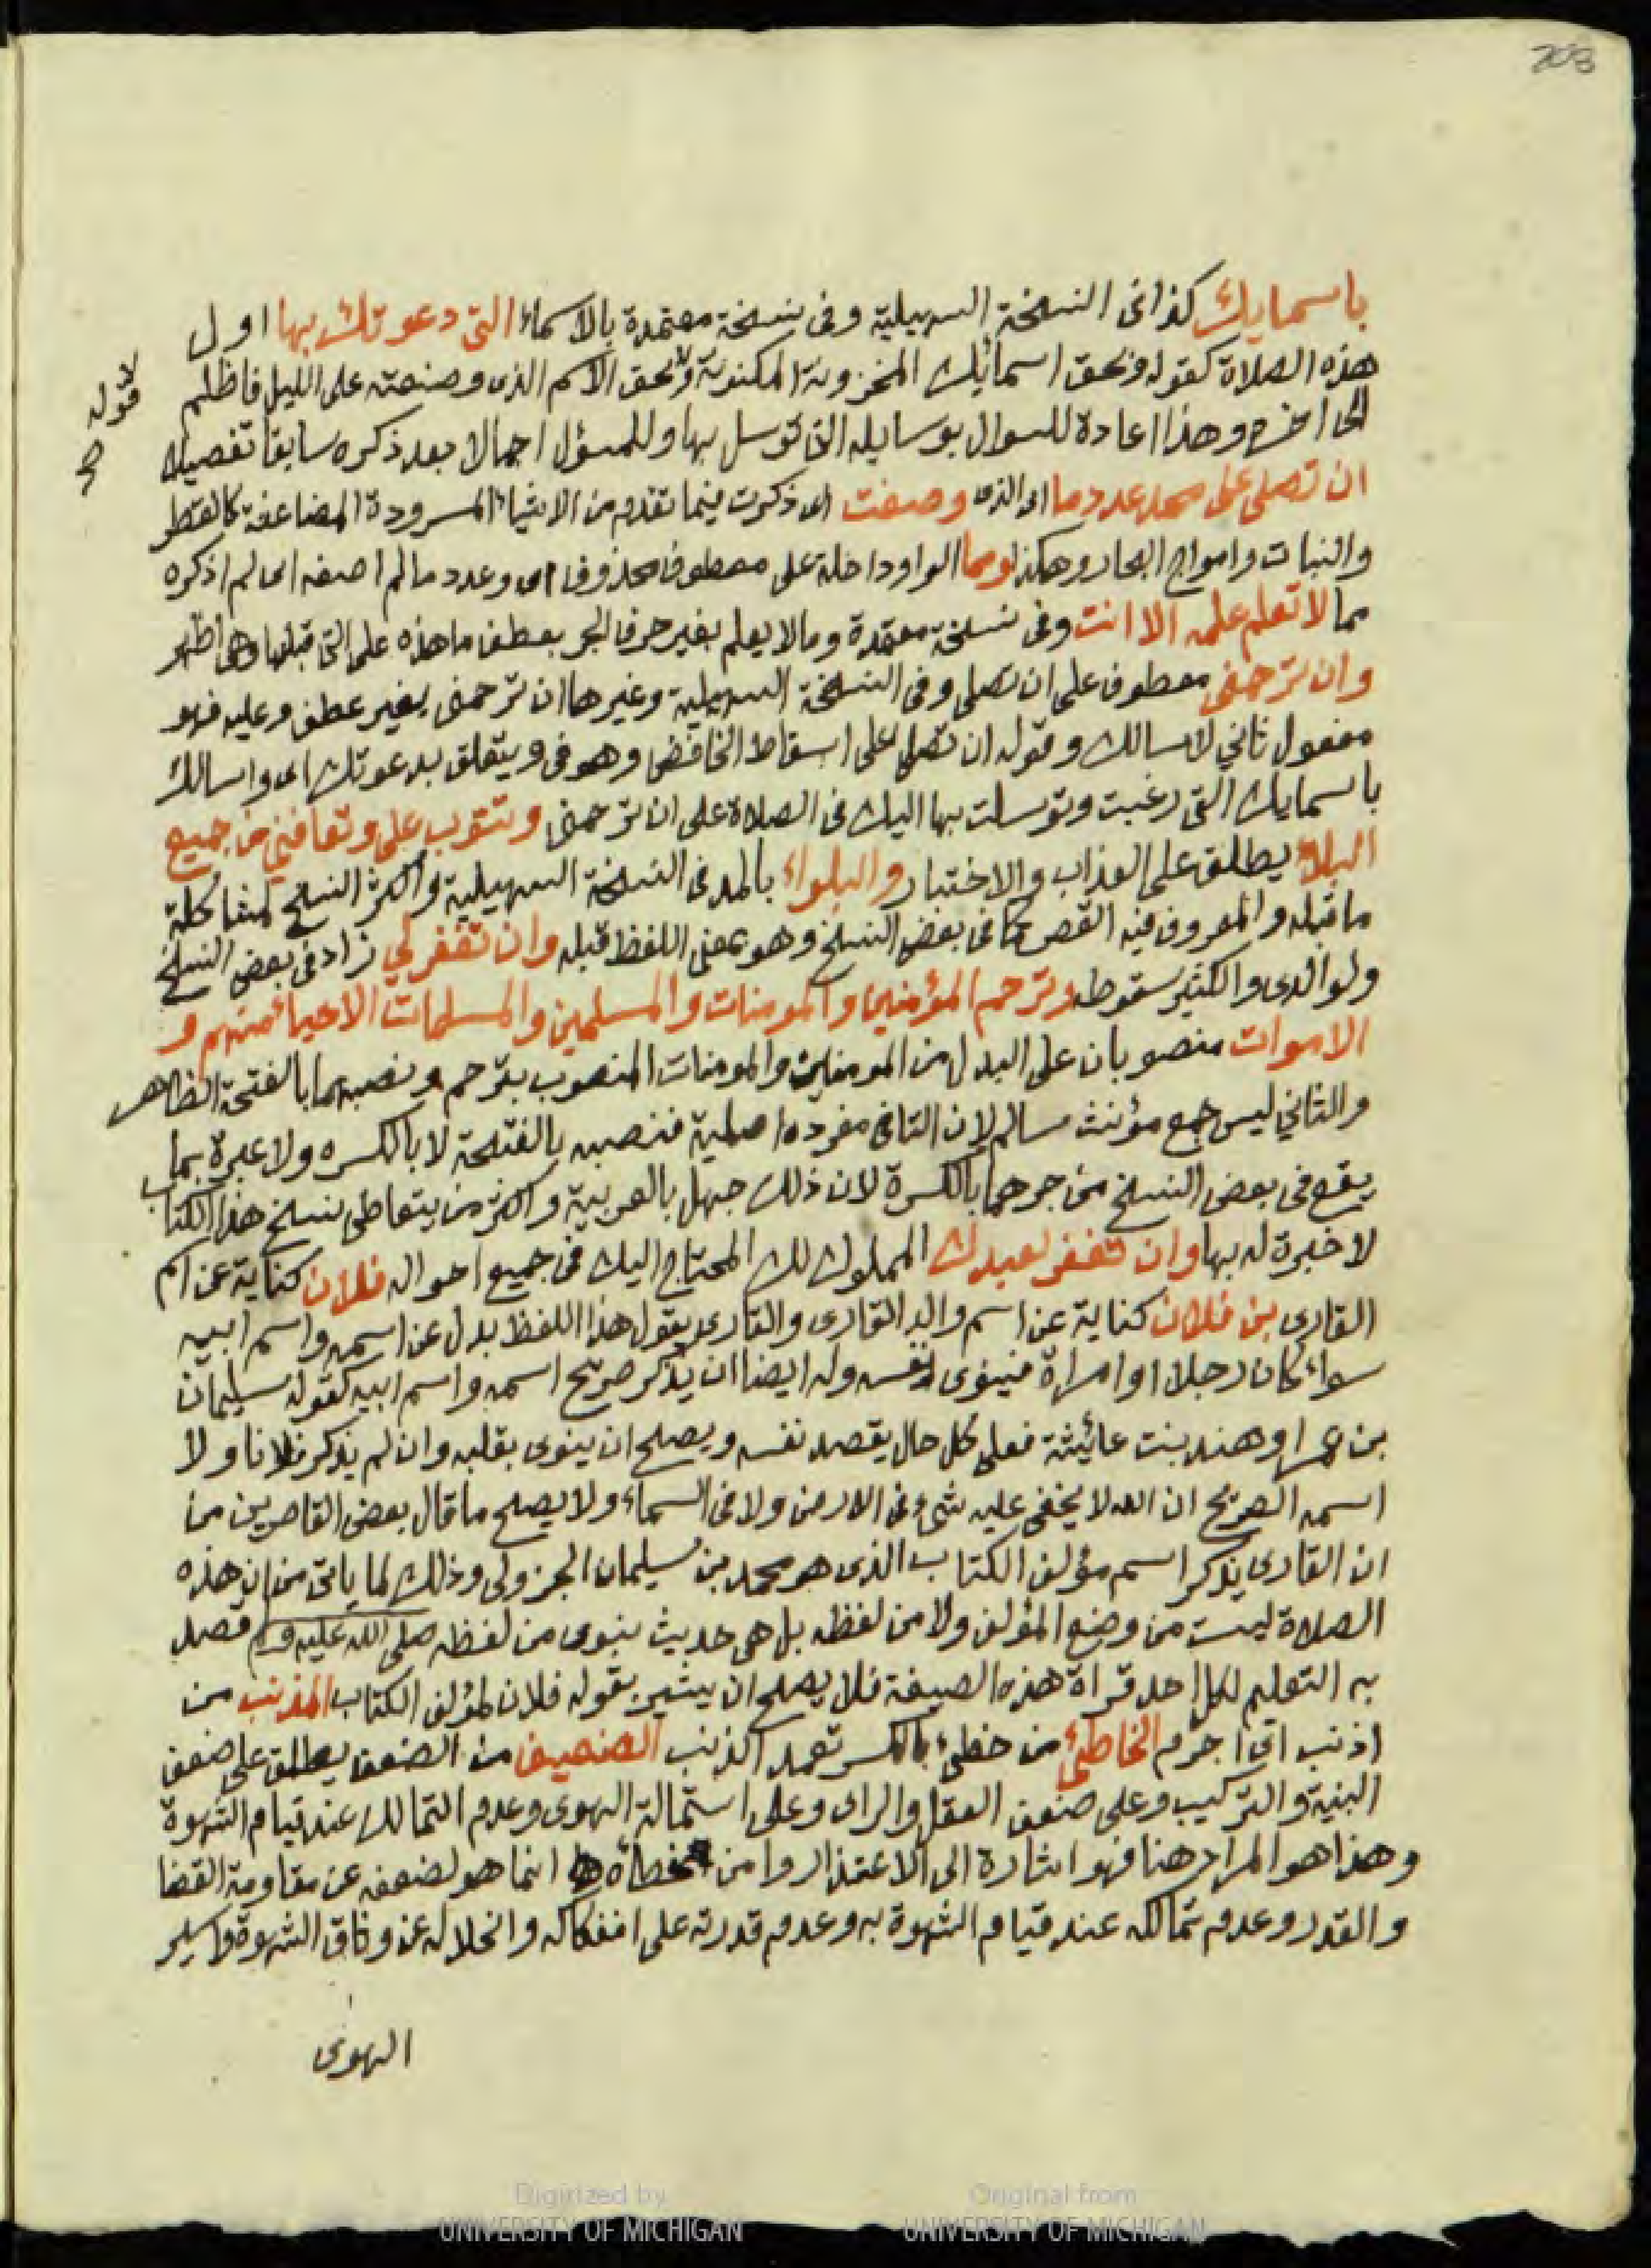 203
باسمايك كذا فى النسخة السهيلية وفى نسخة معتمدة بالاسماء التى دعوتك بها اول
هذه الصلاة كقوله وبحق اسمائك المخزونة المكنونة وبحق الاسم الذى وضعته على الليل فاظلم
قوله
صح
الى اخره وهذا اعادة للسوال بوسايله التى توسل بها وللمسؤل اجمالا بعد ذكره سابقا تفصيلا
ان تصلى على محمد عدد ما اى الذى وصفت اى ذكرت فيما تقدم من الاشياء المسرودة المضاعفة كالقطر
والنبات وامواج البحار وهكذا ومما الواو داخلة على معطوف محذوف اى وعدد ما لم اصفه اى لم اذكره
مما لا تعلم علمه الا انت وفى نسخة معتمدة وما لا يعلم بغير حرف الجر بعطف ما هذه على التى قبلها وهى اظهر
وان ترحمنى معطوف على ان تصلى وفى النسخة السهيلية وغيرها ان ترحمنى بغير عطف وعليه فهو
مفعول ثاني لاسالك وقوله ان تصلى على اسقاط الخافض وهو فى ويتعلق بدعوتك اى واسالك
باسمايك التى رغبت وتوسلت بها اليك فى الصلاة على ان ترحمنى وتتوب على وتعافيني من جميع
البلاء يطلق على العذاب والاختبار والبلواء بالمد فى النسخة السهيلية واكثر النسخ لمشاكلة
ما قبله والمعروف فيه القصر كما فى بعض النسخ وهو بمعنى اللفظ قبله وان تغفر لي زاد فى بعض النسخ
ولوالدى والكثير سقوطه وترحم المؤمنين والمومنات والمسلمين والمسلمات الاحياء منهم و
الاموات منصوبان على البدل من المومنين والمومنات المنصوب بترحم ونصبهما بالفتحة الظاهر
والثاني ليس جمع مؤنث سالم لان التا فى مفرده اصلية فنصبه بالفتحة لا بالكسره ولا عبرة بما
يقع فى بعض النسخ من جرهما بالكسرة لان ذلك جهل بالعربية واكثر من يتعاطى نسخ هذا الكتاب
لا خبرة له بها وان تغفر لعبدك المملوك لك المحتاج اليك فى جميع احواله فلان كناية عن اسم
القارى بن فلان كناية عن اسم والد القارى والقارى يقول هذا اللفظ بدل عن اسمه واسم ابيه
سواء كان رجلا او امراة فينوى نفسه وله ايضا ان يذكر صريح اسمه واسم ابيه كقوله سليمان
بن او هند بنت عائيشة فعلى كل حال يقصد نفسه ويصلح ان ينوى بقلبه وان لم يذكر فلانا ولا
اسمه الصريح ان الله لا يخفى عليه شيء فى الارض ولا فى السماء ولا يصلح ما قال بعض القاصرين من
ان القارى يذكر اسم مؤلف الكتاب الذى هو محمد بن سليمان الجزولى وذلك لما ياتى من ان هذه
الصلاة ليست من وضع المؤلف ولا من لفظه بل هى حديث نبوى من لفظه صلى الله عليه وسلم قصد
به التعليم لكل احد قراة هذه الصيغة فلا يصلح ان يشير بقوله فلان لمؤلف الكتاب المذنب من
اذنب اى اجرم الخاطئ من خطئ بالكسر تعمد الذنب الضعيف من الضعف يطلق على ضعف
البنية والتركيب وعلى ضعف العقل والراى وعلى استمالة الهوى وعدم التمالك عند قيام الشهوة
وهذا هو المراد هنا فهو اشارة الى الاعتذار وا من خطأه انما هو لضعفه عن مقاومة القضا
والقدر وعدم تمالكه عند قيام الشهوة به وعدم قدرته على انفكاكه وانحلاله عن وثاق الشهوة واسير
الهوى
Digitized by
UNIVERSITY OF MICHIGAN
Original from
UNIVERSITY OF MICHIGAN